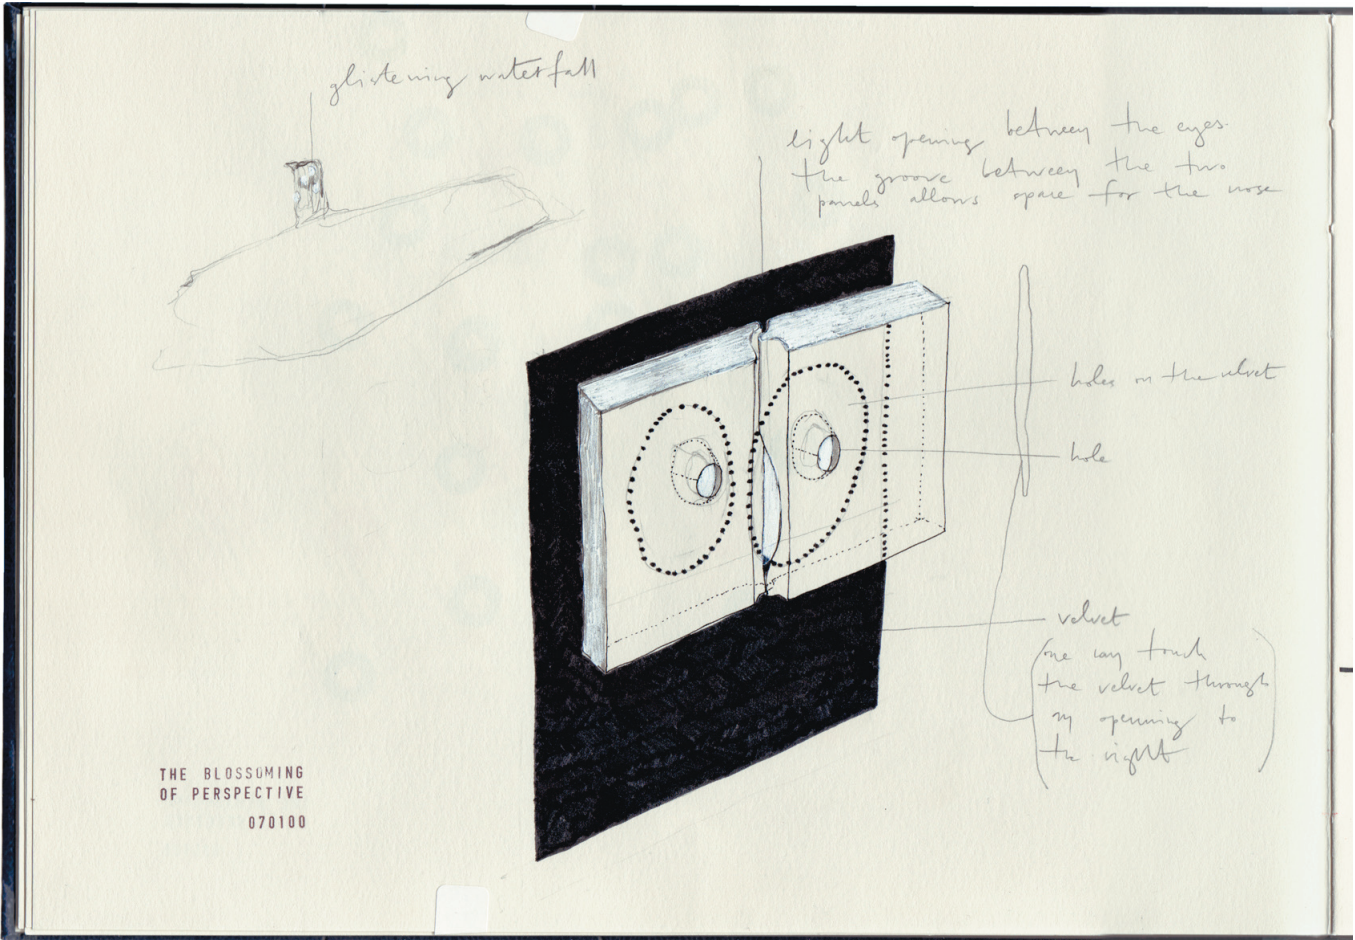 glistening waterfall
light opening between the eyes.
the groove between the two
panels allows space for the nose
holes on the velvet
hole
velvet
(one can touch
the velvet through
an opening to
the right)
THE BLOSSOMING
OF PERSPECTIVE
070100